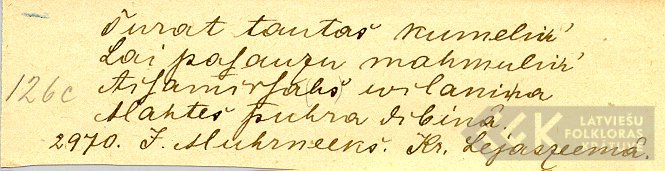 Turat tautas kumeliņ'
Lai pasauzu mahmuliņ'
Aisamirsahs wilaniņa
Mahtes puhra dibinâ.
126c
2970. J. Muhrneeks. Kr. Lejaszeemâ.
LATVIEŠU
FOLKLORAS